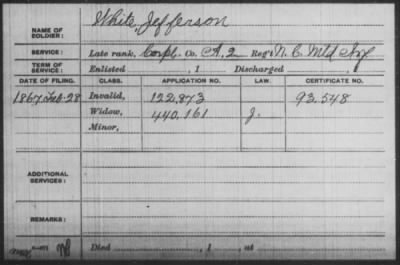 NAME OF SOLDIER: White, Jefferson
SERVICE: Late rank, Corpl. Co. A, 2 Reg't N. C. Mtd Inf
TERM OF SERVICE: Enlisted , 1 Discharged , 1
DATE OF FILING. CLASS. APPLICATION NO. LAW. CERTIFICATE NO.
1867 Feb. 28 Invalid, 122,873 93,548
Widow, 440,161 J.
Minor,
ADDITIONAL SERVICES:
REMARKS:
Died , 1 , at